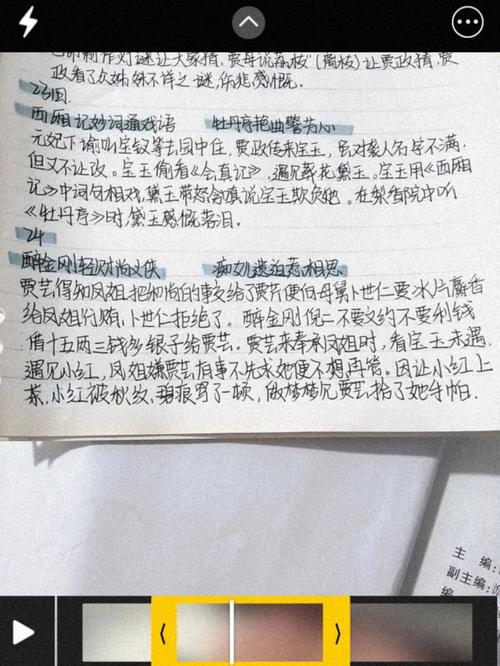 己命制作灯谜让大家猜，贾母说荔枝（离枝）让贾政猜，贾
政看了众姊妹不详之谜，你悲感慨。
23回
西厢记妙词通戏语 牡丹亭艳曲警芳心
元妃下谕叫宝钗等去园中住，贾政传来宝玉，虽对袭人名字不满，
但又不让改。宝玉偷看《会真记》，遇见葬花黛玉。宝玉用《西厢
记》中词句相戏，黛玉带怒含嗔说宝玉欺负她。在梨香院中听
《牡丹亭》时，黛玉感慨落泪。
24
醉金刚轻财尚义侠 痴女儿遗帕惹相思
贾芸得知凤姐把和尚的事交给了贾芹便向母舅卜世仁要冰片麝香
给凤姐行贿，卜世仁拒绝了。醉金刚倪二不要文约不要利钱
借十五两三钱多银子给贾芸。贾芸来奉承凤姐时，看宝玉未遇，
遇见小红，凤姐嫌贾芸有事不先求她便不想再管。因让小红上
茶，小红被秋纹、碧痕骂了一顿，做梦梦见贾芸拾了她手帕．
主 编：
副主编：